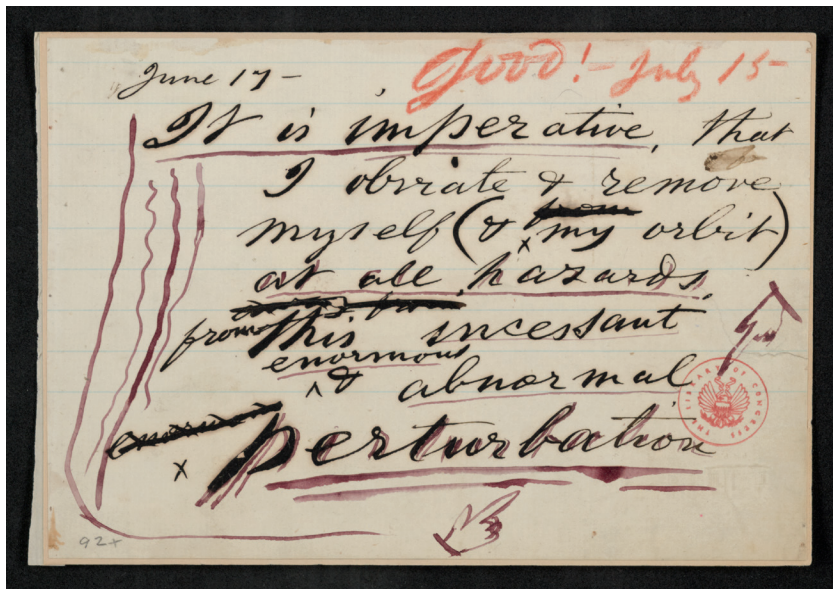 June 17 –
Good! – July 15 –
It is imperative, that
I obviate & remove
myself (& my orbit)
at all hazards,
from this incessant
enormous
& abnormal
perturbation
THE LIBRARY OF CONGRESS
92+